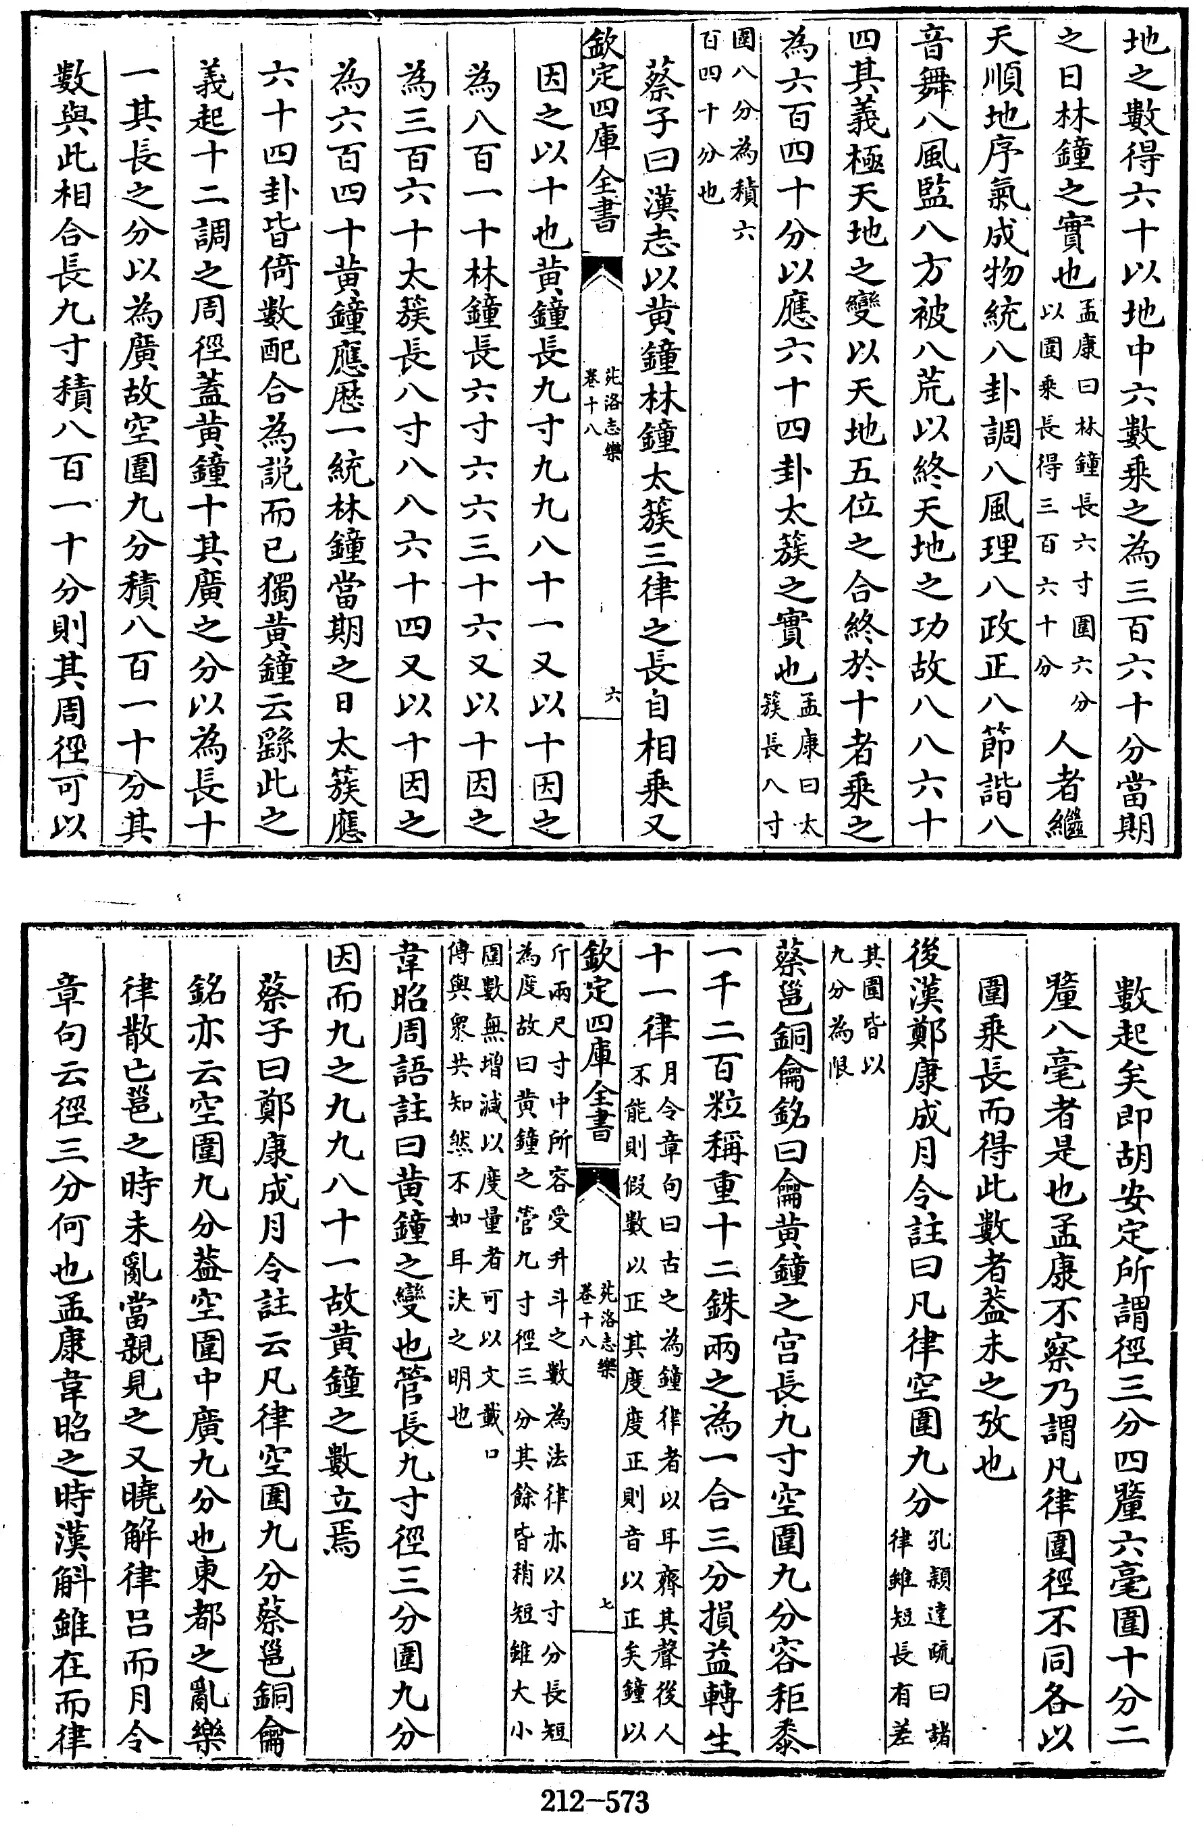 地之數得六十以地中六數乘之為三百六十分當期
之日林鐘之實也孟康曰林鐘長六寸圍六分以圍乘長得三百六十分人者繼
天順地序氣成物統八卦調八風理八政正八節諧八
音舞八風監八方被八荒以終天地之功故八八六十
四其義極天地之變以天地五位之合終於十者乘之
為六百四十分以應六十四卦太簇之實也孟康曰太簇長八寸
圍八分為積六百四十分也
蔡子曰漢志以黃鐘林鐘太簇三律之長自相乘又
欽定四庫全書
苑洛志樂
卷十八
六
因之以十也黃鐘長九寸九九八十一又以十因之
為八百一十林鐘長六寸六六三十六又以十因之
為三百六十太簇長八寸八八六十四又以十因之
為六百四十黃鐘應歷一統林鐘當期之日太簇應
六十四卦皆倚數配合為說而已獨黃鐘云繇此之
義起十二調之周徑蓋黃鐘十其廣之分以為長十
一其長之分以為廣故空圍九分積八百一十分其
數與此相合長九寸積八百一十分則其周徑可以
數起矣即胡安定所謂徑三分四釐六毫圍十分二
釐八毫者是也孟康不察乃謂凡律圍徑不同各以
圍乘長而得此數者蓋未之攷也
後漢鄭康成月令註曰凡律空圍九分孔穎達疏曰諸律雖短長有差
其圍皆以九分為限
蔡邕銅龠銘曰龠黃鐘之宮長九寸空圍九分容秬黍
一千二百粒稱重十二銖兩之為一合三分損益轉生
十一律月令章句曰古之為鐘律者以耳齊其聲後人不能則假數以正其度度正則音以正矣鐘以
欽定四庫全書
苑洛志樂
卷十八
七
斤兩尺寸中所容受升斗之數為法律亦以寸分長短為度故曰黃鐘之管九寸徑三分其餘皆稍短雖大小
圍數無增減以度量者可以文載口傳與衆共知然不如耳決之明也
韋昭周語註曰黃鐘之變也管長九寸徑三分圍九分
因而九之九九八十一故黃鐘之數立焉
蔡子曰鄭康成月令註云凡律空圍九分蔡邕銅龠
銘亦云空圍九分蓋空圍中廣九分也東都之亂樂
律散亡邕之時未亂當親見之又曉解律呂而月令
章句云徑三分何也孟康韋昭之時漢斛雖在而律
212-573